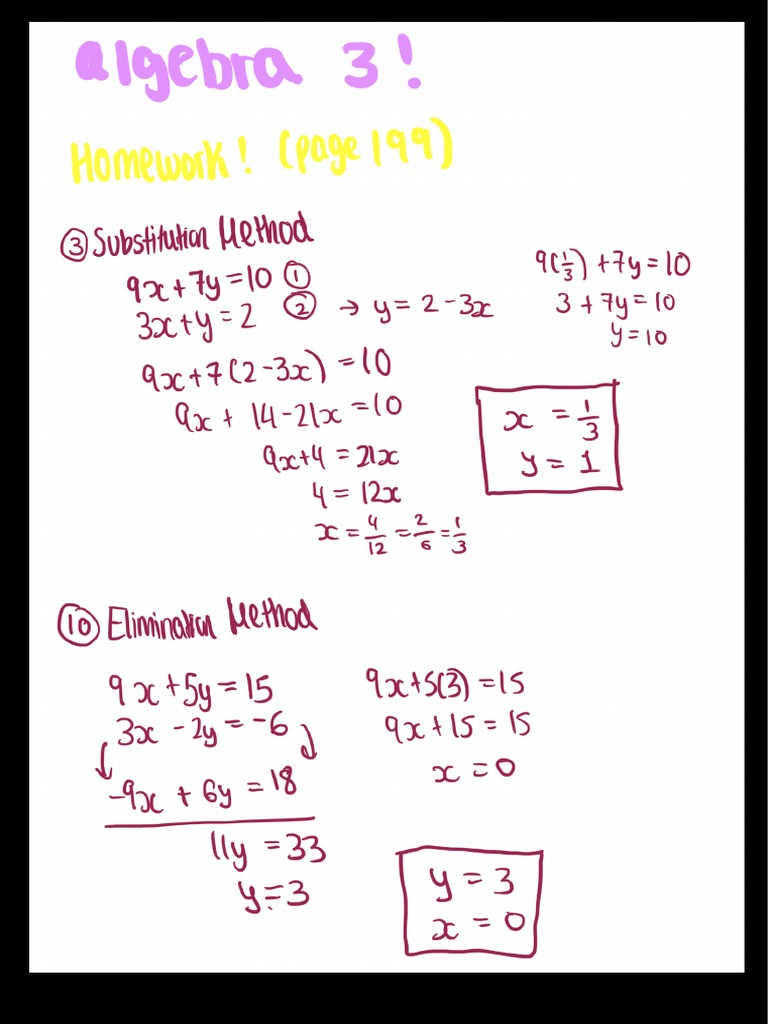 algebra 3!
Homework! (page 199)
③ Substitution Method
9x+7y=10 ①
3x+y=2 ② → y=2-3x
9x+7(2-3x)=10
9x+14-21x=10
9x+4=21x
4=12x
x=4/12=2/6=1/3
9(1/3)+7y=10
3+7y=10
y=10
x=1/3
y=1
⑩ Elimination Method
9x+5y=15
3x-2y=-6
-9x+6y=18
11y=33
y=3
9x+5(3)=15
9x+15=15
x=0
y=3
x=0